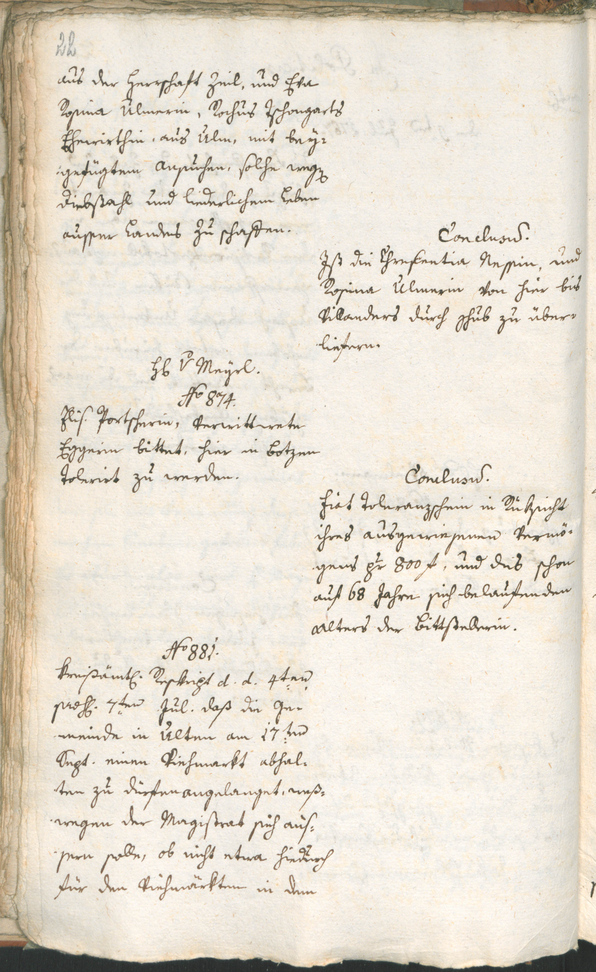 22
aus der Herrschaft Zeil, und Eva
Rosina Ulmerin, Rochus Tschongarts
Ehewirthin, aus Ulm, mit bey-
gefügtem Ansuchen, solche wegen
Diebstahl und liederlichem Leben
ausser Landes zu schaffen.
Conclusum.
Ist die Chrescentia Nessin, und
Rosina Ulmerin von hier bis
Villanders durch Schub zu über-
liefern.
H. v. Meyrl.
No 874.
Elis. Portscherin, verwittwete
Eggerin bittet, hier in Botzen
tolerirt zu werden.
Conclusum.
Fiat Toleranzschein in Rücksicht
ihres ausgewiesenen Vermö-
gens pr 800 f, und des schon
auf 68 Jahre sich belaufenden
Alters der Bittstellerin.
No 881.
Kreisämtl. Reskript d. d. 4ten
7ten Jul. daß die Ge-
meinde in Ulten am 17ten
Sept. einen Viehmarkt abhal-
ten zu dürfen angelanget, weß-
wegen der Magistrat sich äus-
sern solle, ob nicht etwa hiedurch
für den Viehmärkten in dem